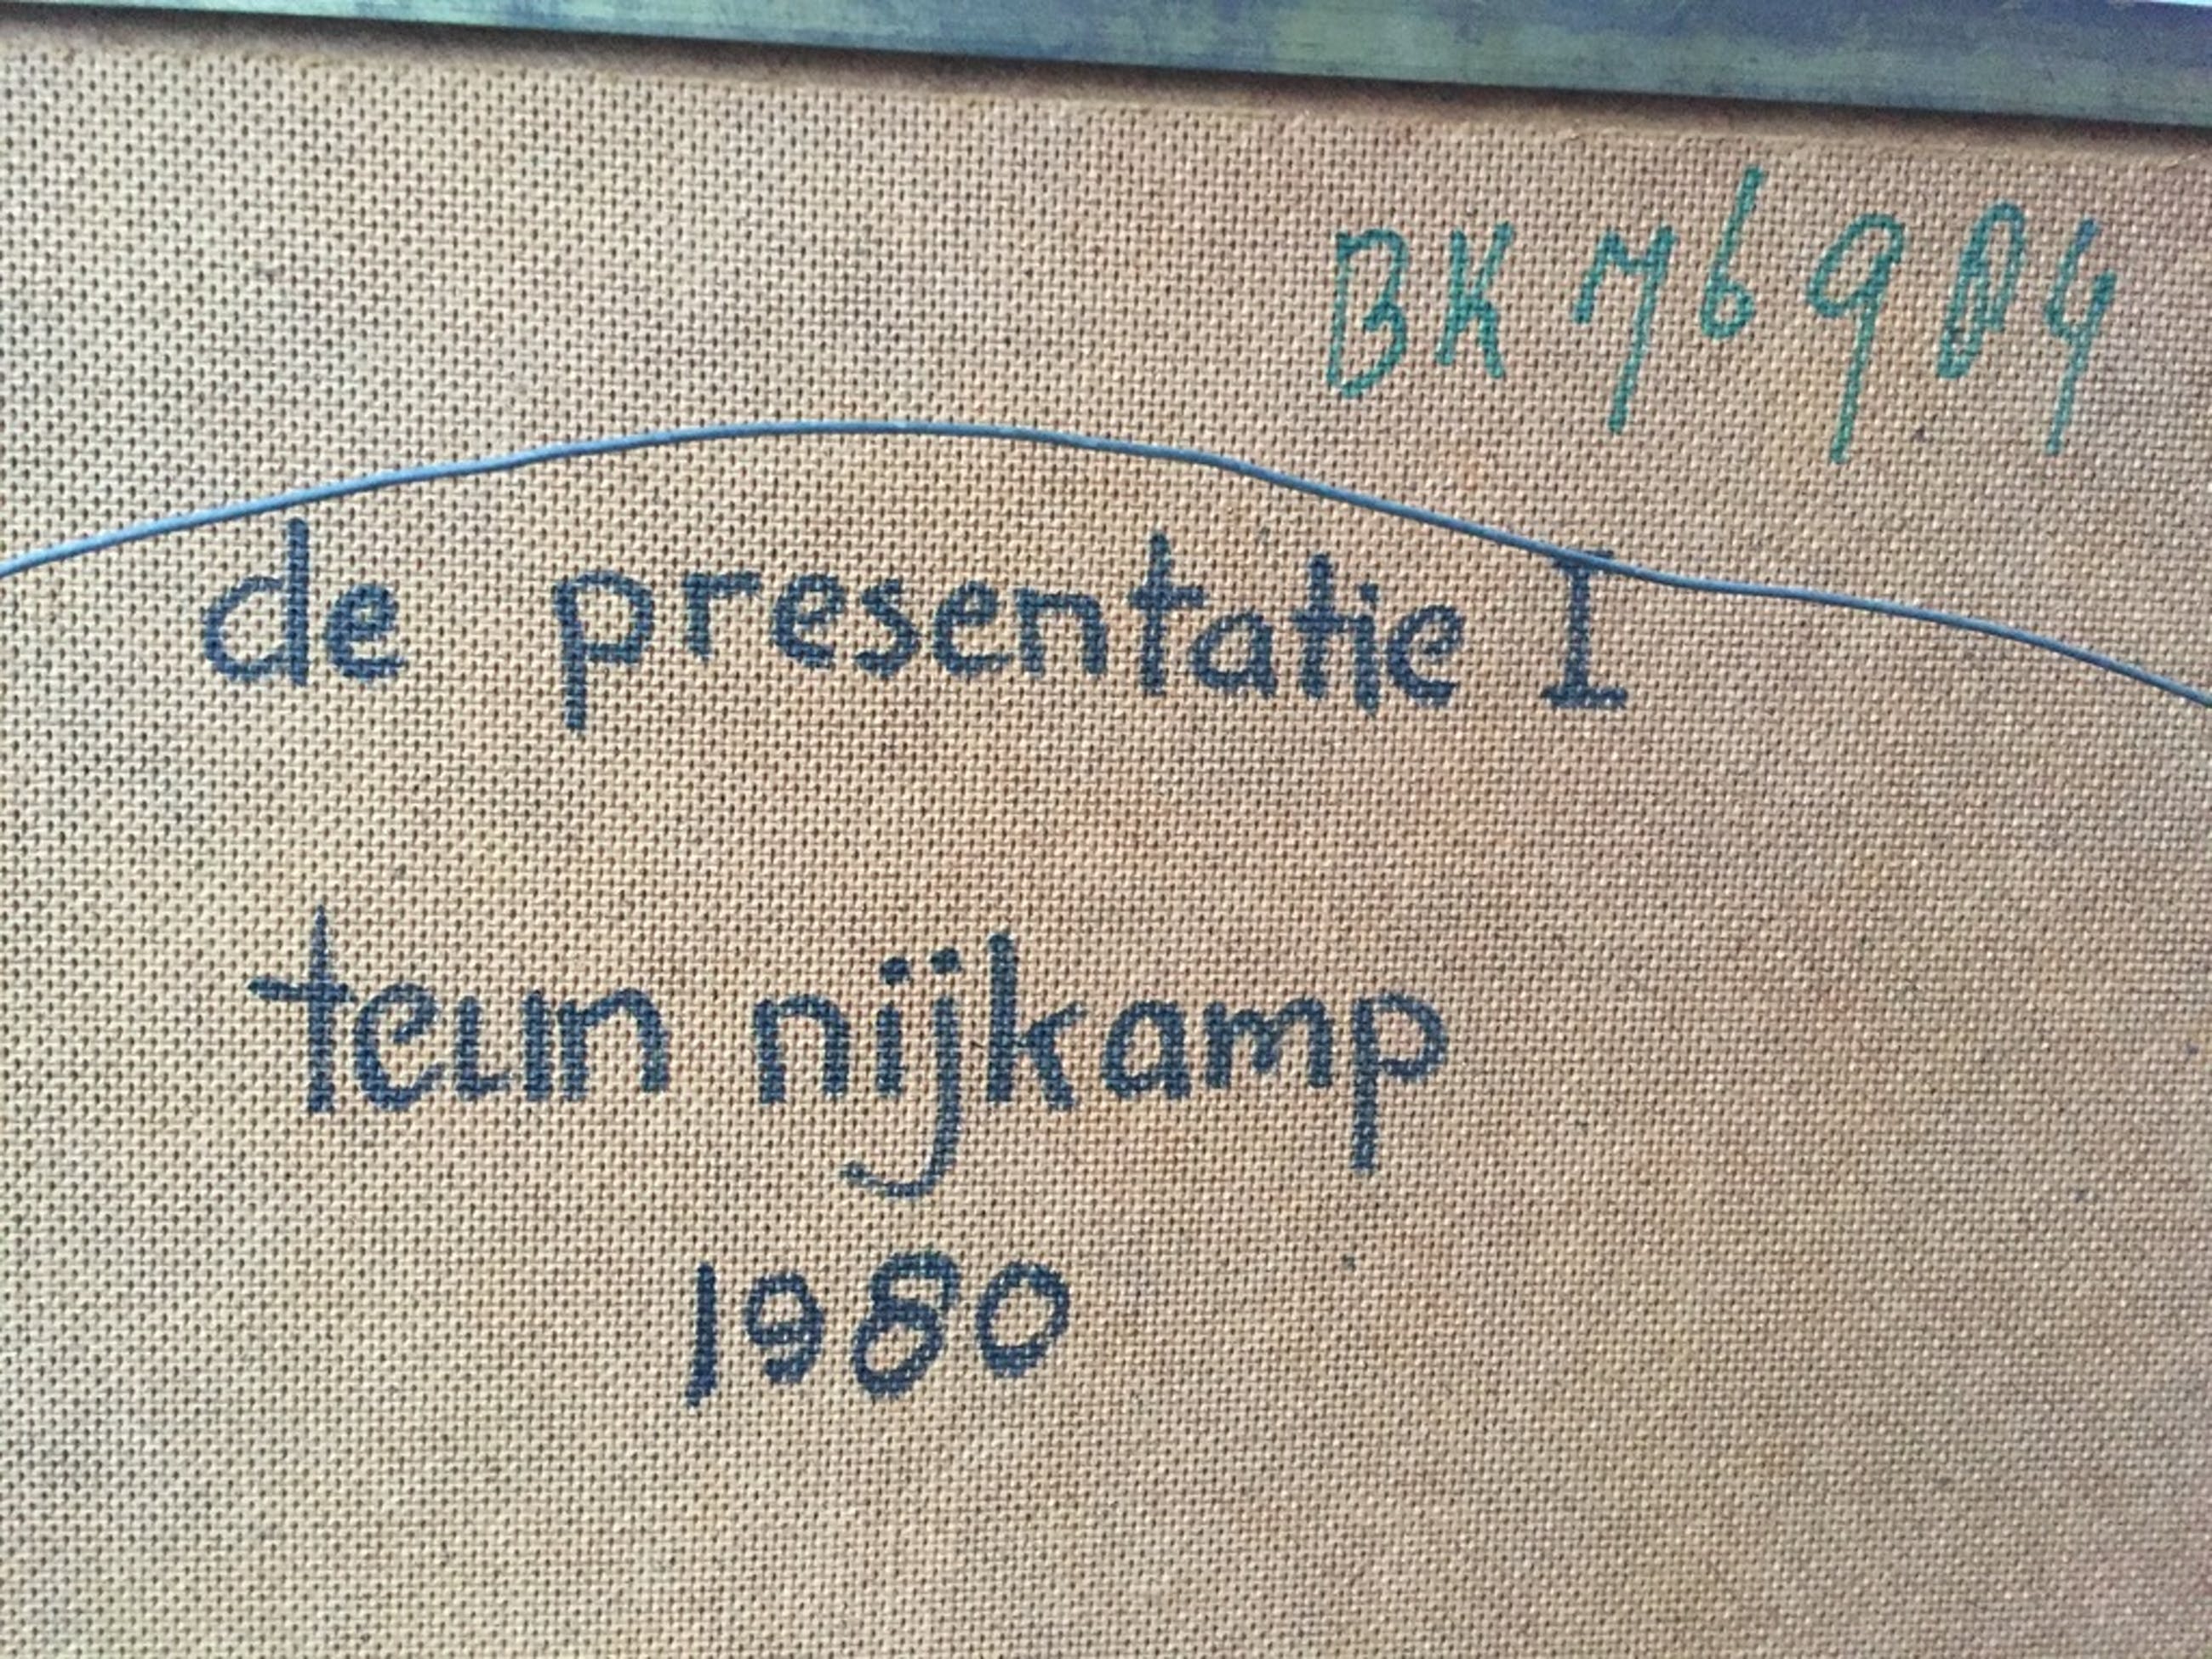 BK 76904
de presentatie I
teun nijkamp
1980